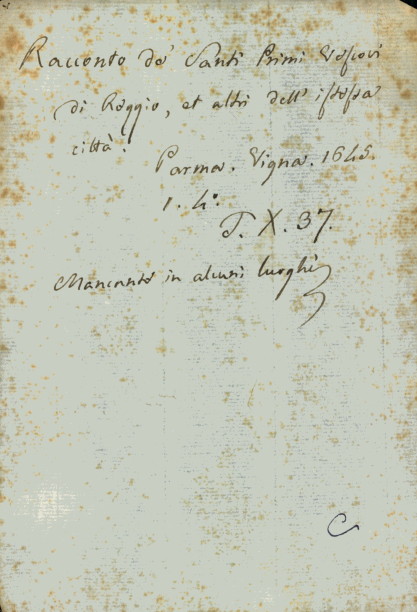 Racconto de' Santi Primi Vescovi
di Reggio, et altri dell' istessa
città.
Parma. Vigna. 1648.
1. 4.º
T. X. 37.
Mancante in alcuni luoghi
C